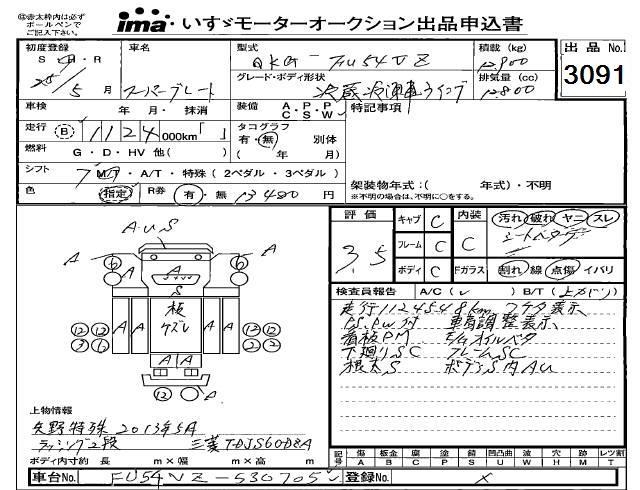 ⑬赤太枠内は必ず
ボールペンで
ご記入下さい。
ima いすゞモーターオークション出品申込書
初度登録 車名 型式 積載 (kg) 出品 No.
S・H・R QKG-FU54VZ 12,900
25/5月 スーパーグレート グレード・ボディ形状 排気量 (cc) 3091
冷蔵冷凍車ウイング 12800
車検 年・月・抹消 装備 A・P・P C・S・W 特記事項
走行 B 1124 000km「 」 タコグラフ
有・無 別体
燃料 G・D・HV 他( ) ( 年 月)
シフト 7 M/T・A/T・特殊 (2ペダル・3ペダル) 架装物年式:( 年式)・不明
※不明の場合は、不明に○をする。
色 指定 R券 有・無 13480 円
評価 キャブ C 内装 汚れ 破れ ヤニ スレ
3.5 フレーム C C
ボディ C Fガラス 割れ 線 点傷 イバリ
検査員報告 A/C( ) B/T(上がり)
走行112454.8km フタタ表示
P.S. P.W 付 車高調整表示
看板PM E/Gオイルベタ
下廻りSC フレームSC
根太S ボディS内AU
A・U・S
A
A
6
6
A
A
S
板
ケズレ
12 12 A A A A 12 12
A A
12
上物情報
矢野特殊 2013年5月
ラッシング2段 三菱TDJS60D8A
ボディ内寸約 長 m×幅 m×高 m
記号 傷 A 板金 B 腐 C 塗 P 錆 S 凹凸曲 U 波 W 穴 H 跡 M レツ割 T
車台No. FU54VZ-530705 登録No. ×